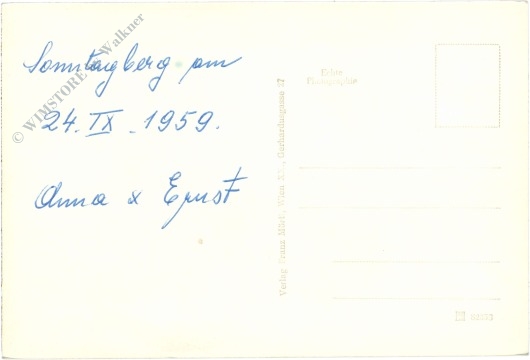 Sonntagberg am
24. IX. 1959.
Anna & Ernst
© WIMSTORE Walkner
Echte
Photographie
Verlag Franz Mörtl, Wien XV., Gerhardusgasse 27